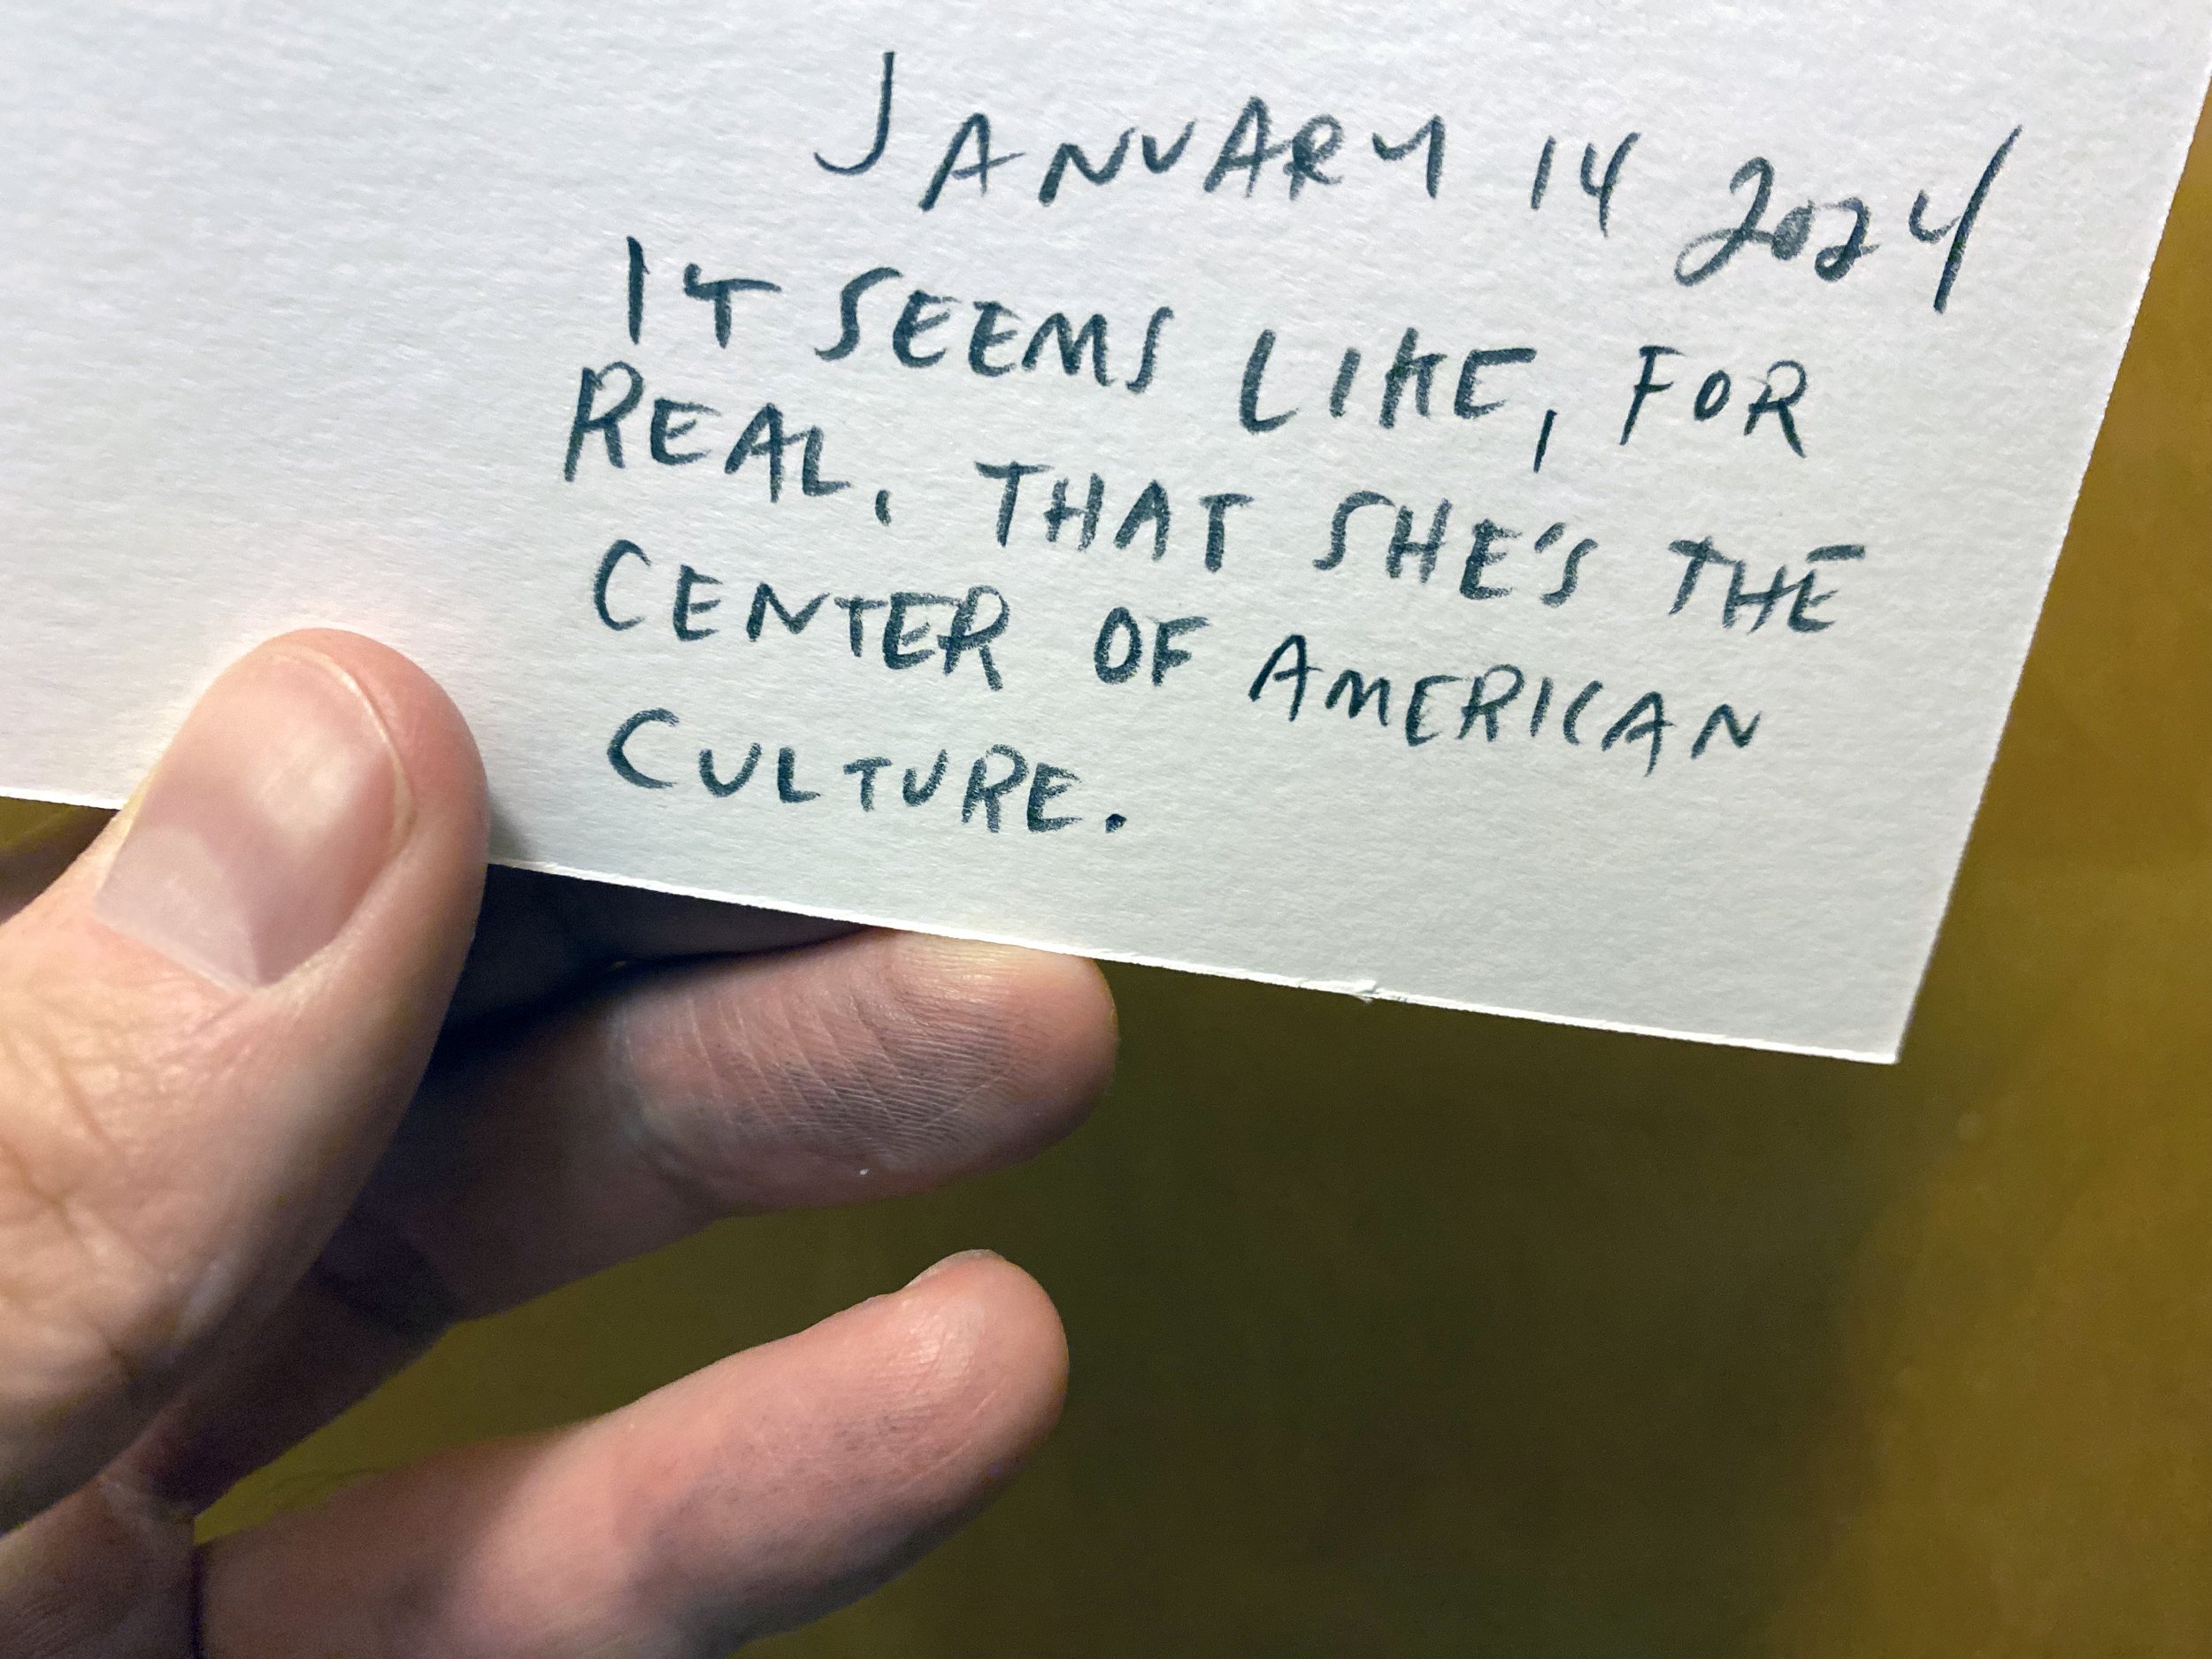 JANUARY 14 2024
IT SEEMS LIKE, FOR
REAL, THAT SHE'S THE
CENTER OF AMERICAN
CULTURE.